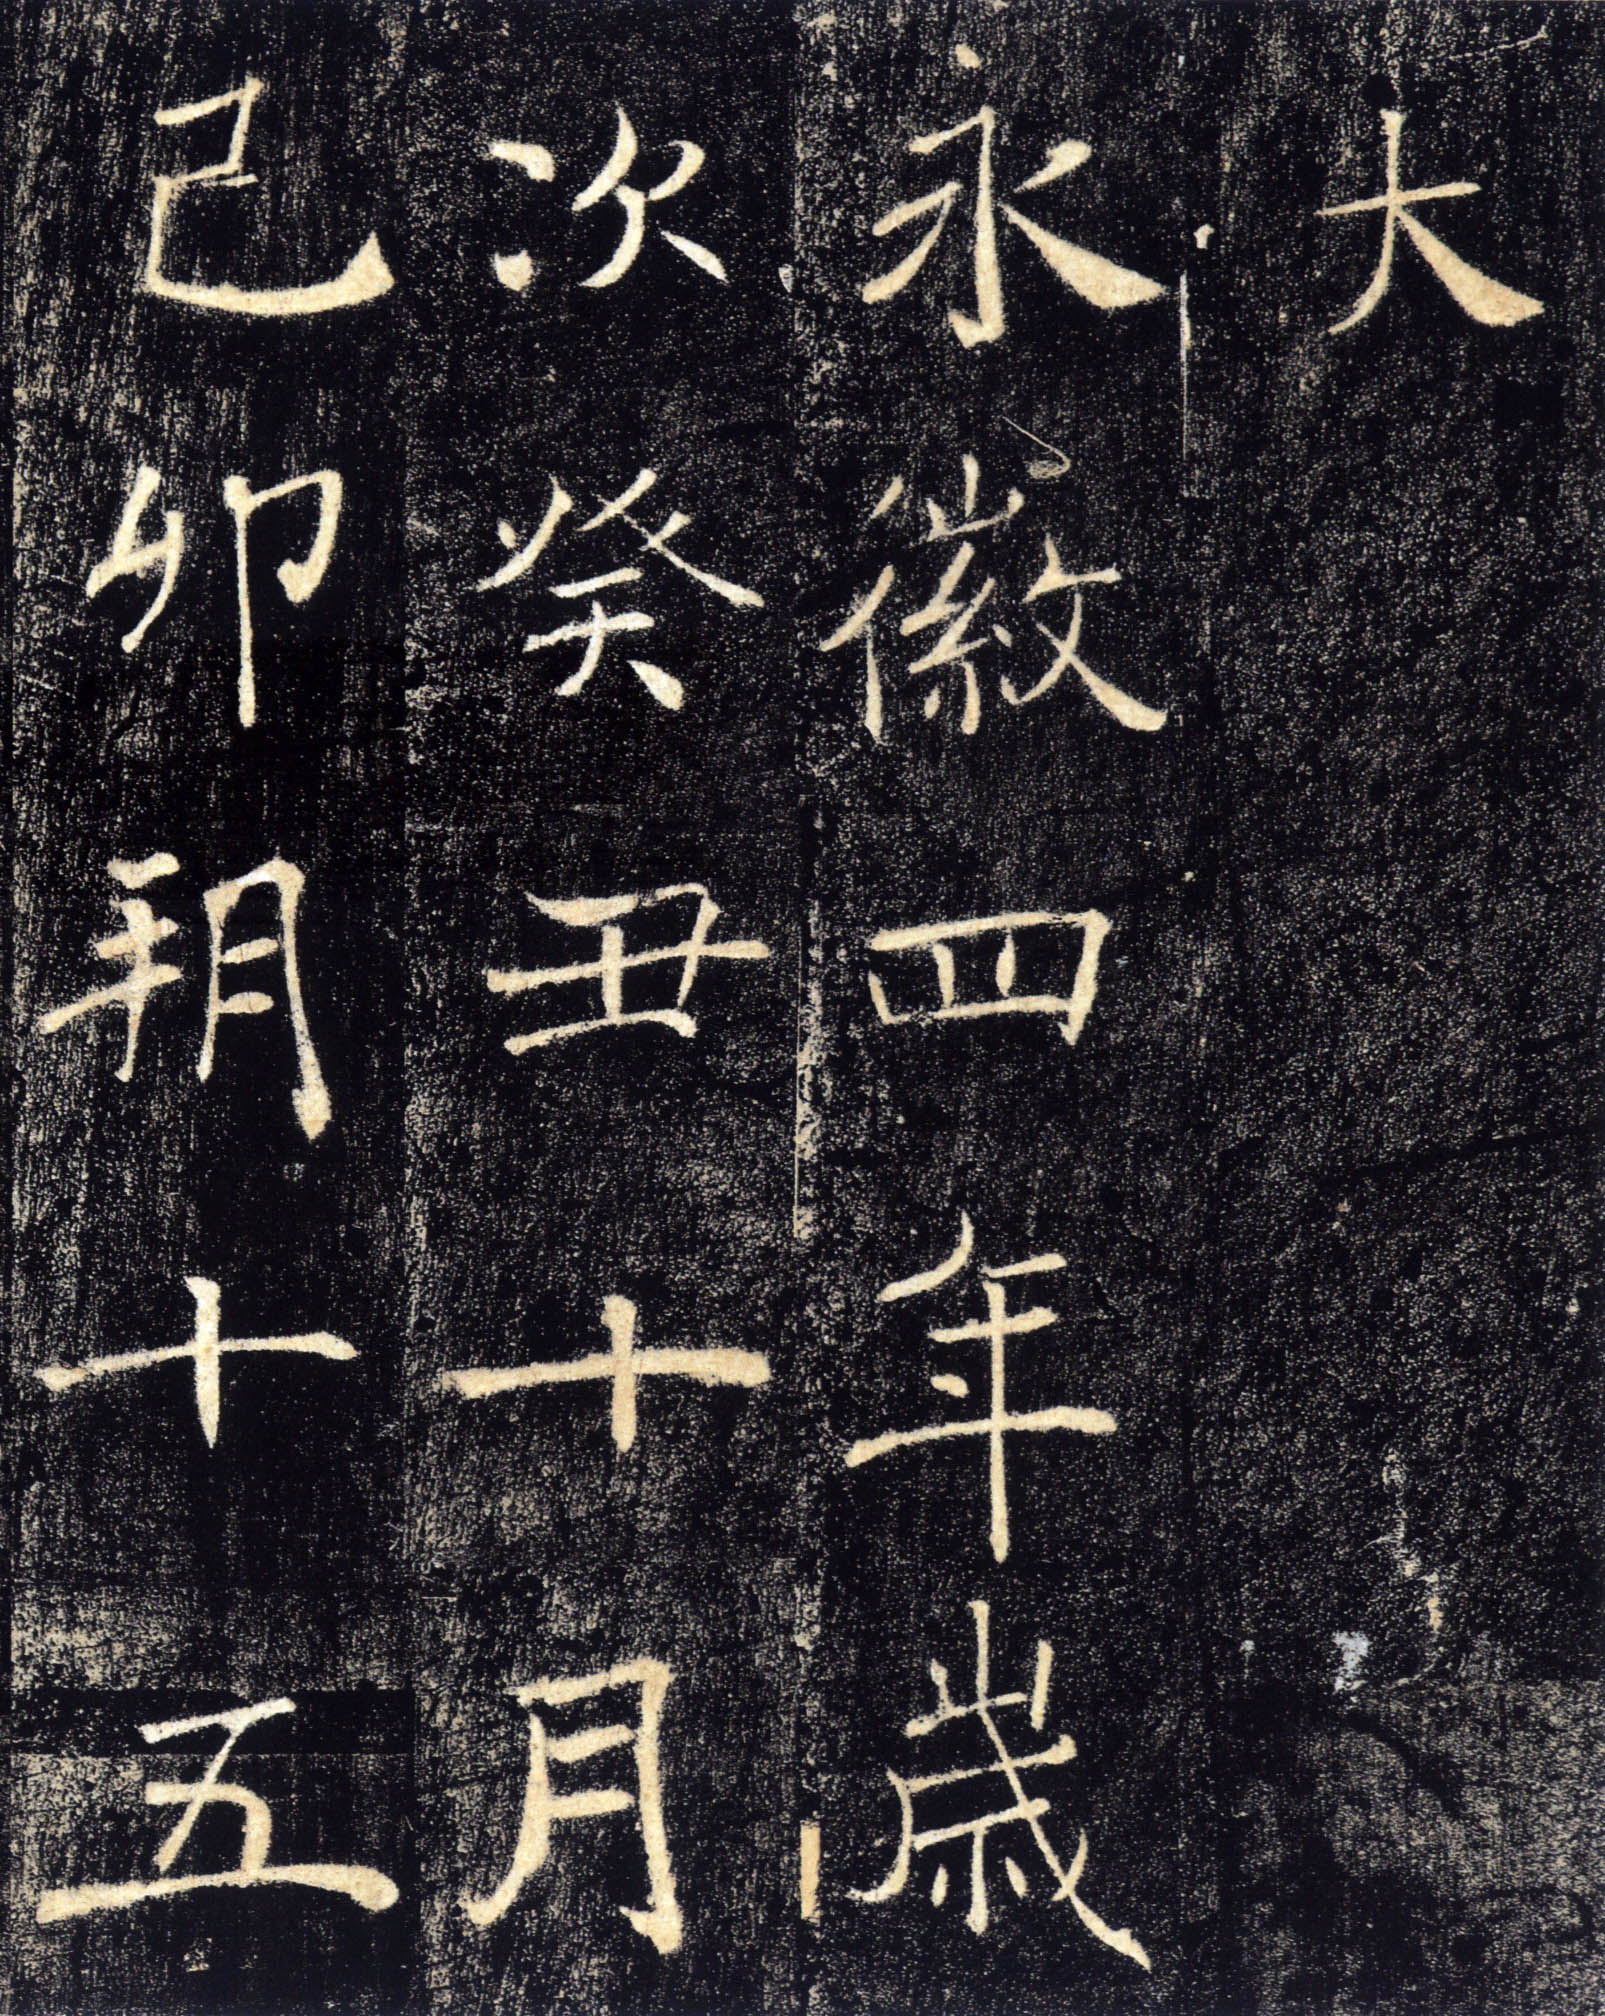 大
永徽四年歲
次癸丑十月
己卯朔十五